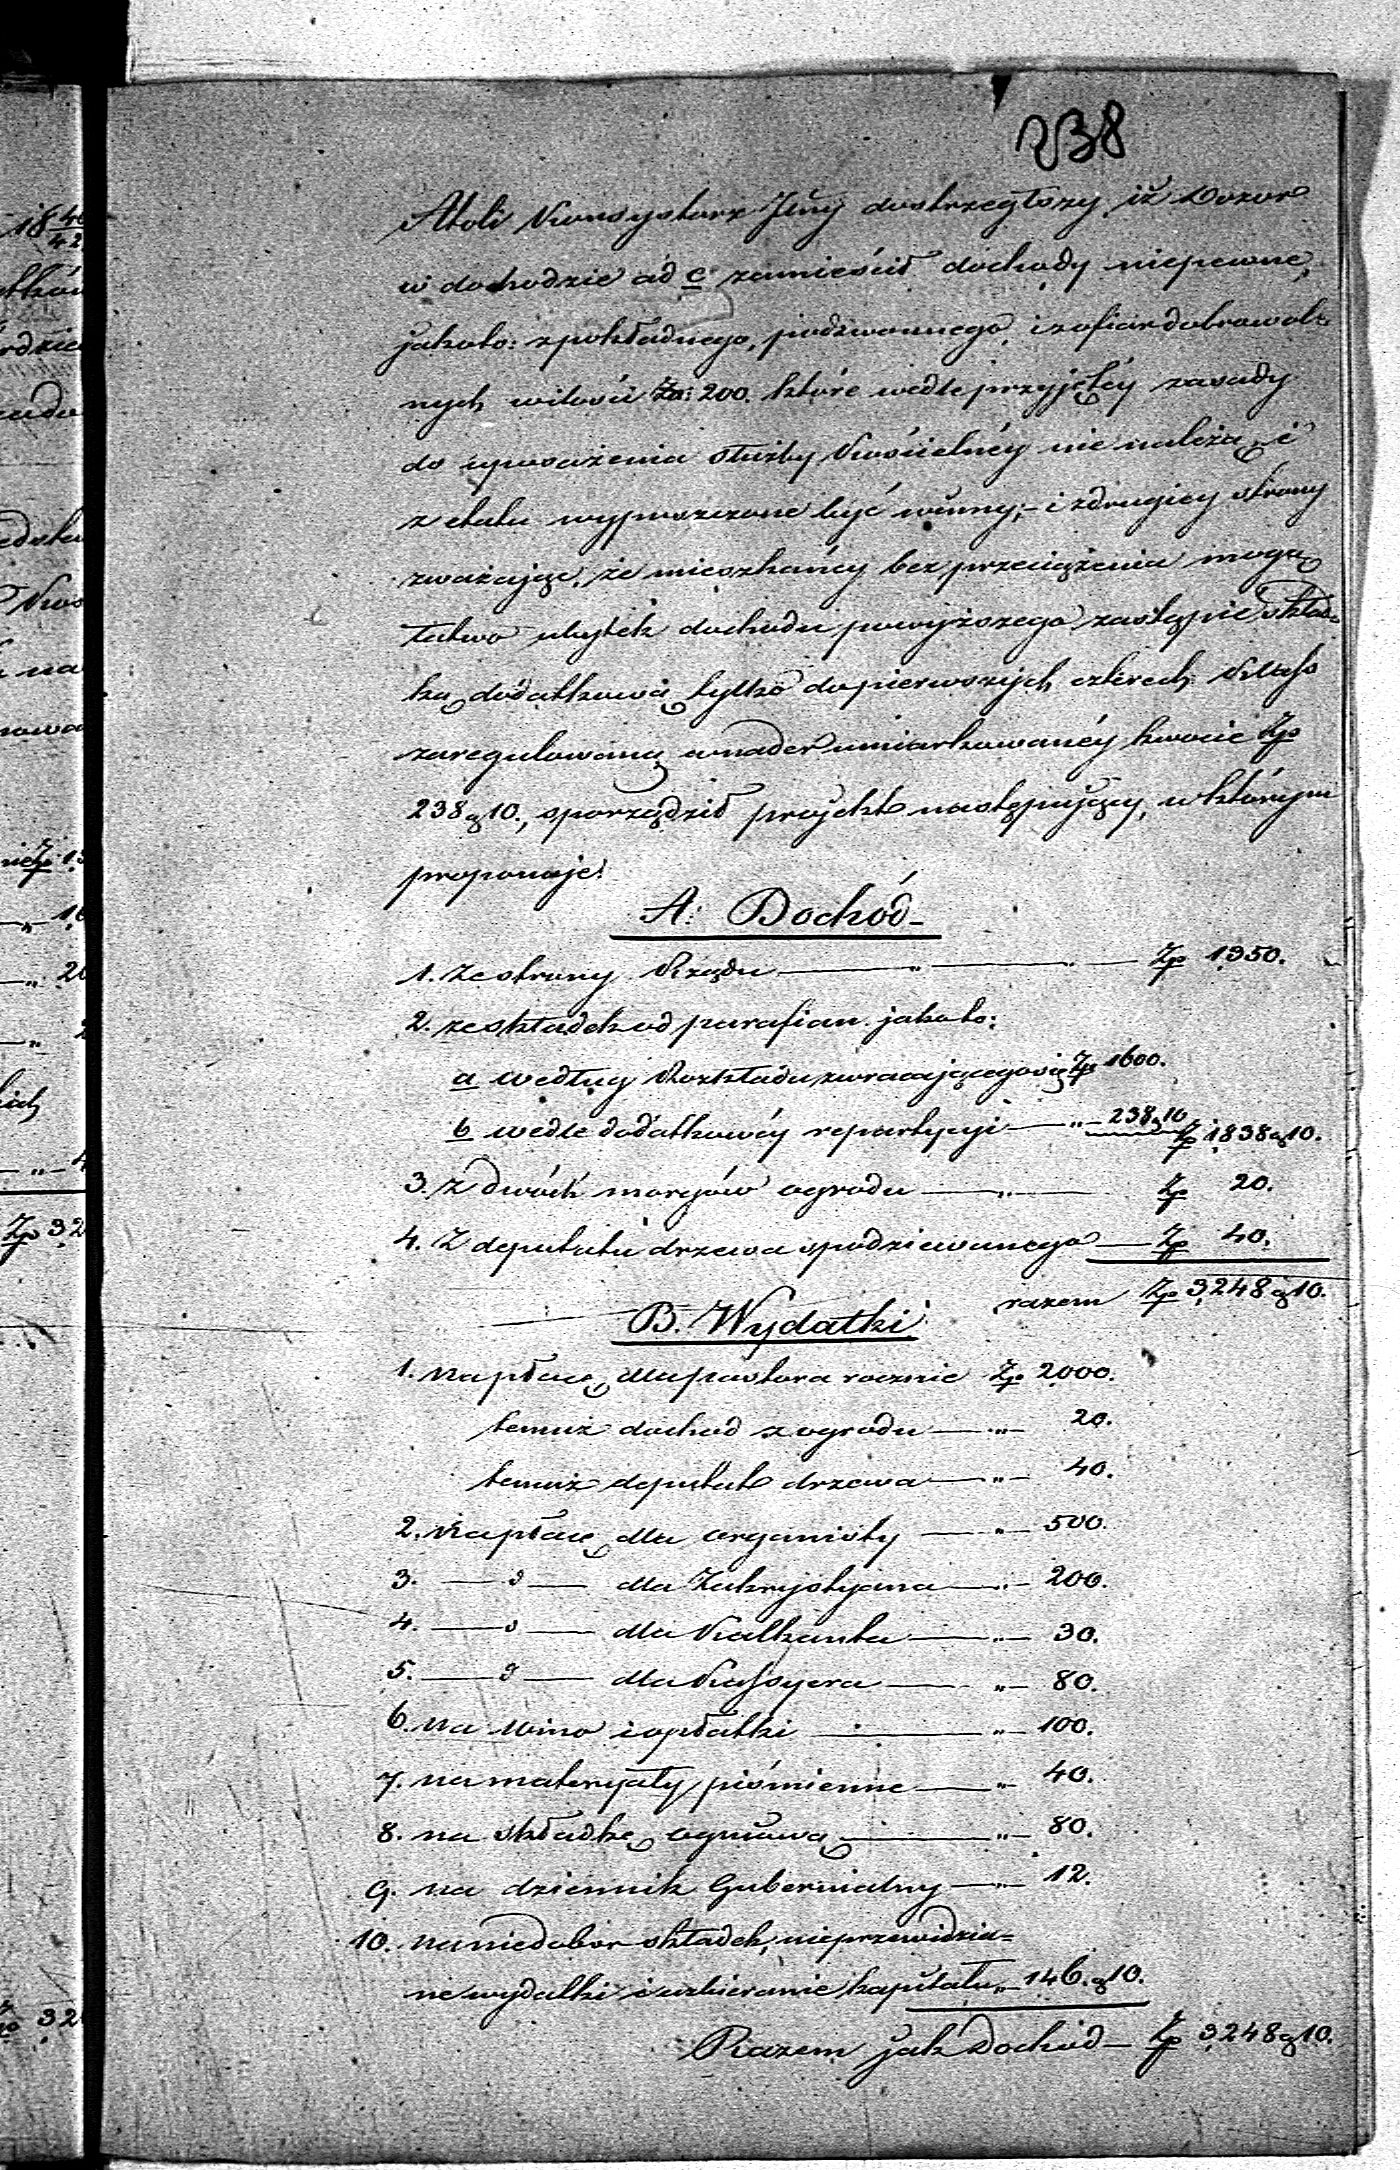 238
Atoli Konsystorz Jlny dostrzegłszy, iż Dozor
w dochodzie ad c zamieścił dochody niepewne,
jakoto: z pokładnego, podzwonnego, i z ofiar dobrowol=
nych w ilości Zp: 200. które wedle przyjętéy zasady
do uposażenia służby Kościelnéy nie należą, i
z etatu wypuszczone być winny; – i z drugiey strony
zważając, że mieszkańcy bez przeciążenia mogą
łatwo ubytek dochodu powyższego zastąpić skład=
ką dodatkową tylko do pierwszych czterech Klass
zaregulowaną w nader umiarkowanéy kwocie Zp
238 g 10., sporządził projekt następujący, w którym
proponuje:
A. Dochód –
1. Ze strony Rządu — „ — „ — Zp 1350.
2. ze składek od parafian jakoto:
a według Rozkładu zwracającego się Zp 1600.
b wedle dodatkowéy repartycyi — „ — 238 g 10 Zp 1838 g 10.
3. Z dwóch morgów ogrodu — „ — Zp 20.
4. Z deputatu drzewa spodziewanego — Zp 40.
razem Zp 3248 g 10.
B. Wydatki
1. na płacę dla pastora rocznie Zp 2000.
temuż dochod z ogrodu — „ — 20.
temuż deputat drzewa — „ — 40.
2. na płacę dla organisty — „ — 500.
3. — " — dla Zakrystyana — „ — 200.
4. — " — dla Kalkanta — „ — 30.
5. — " — dla Kassyera — „ — 80.
6. na wino i opłatki — „ — 100.
7. na materyały piśmienne — „ — 40.
8. na składkę ogniową — „ — 80.
9. na dziennik Gubernialny — „ — 12.
10. na niedobor składek, nieprzewidzia=
ne wydatki i uzbieranie kapitału „ — 146. g 10.
Razem jak Dochód — Zp 3248 g 10.